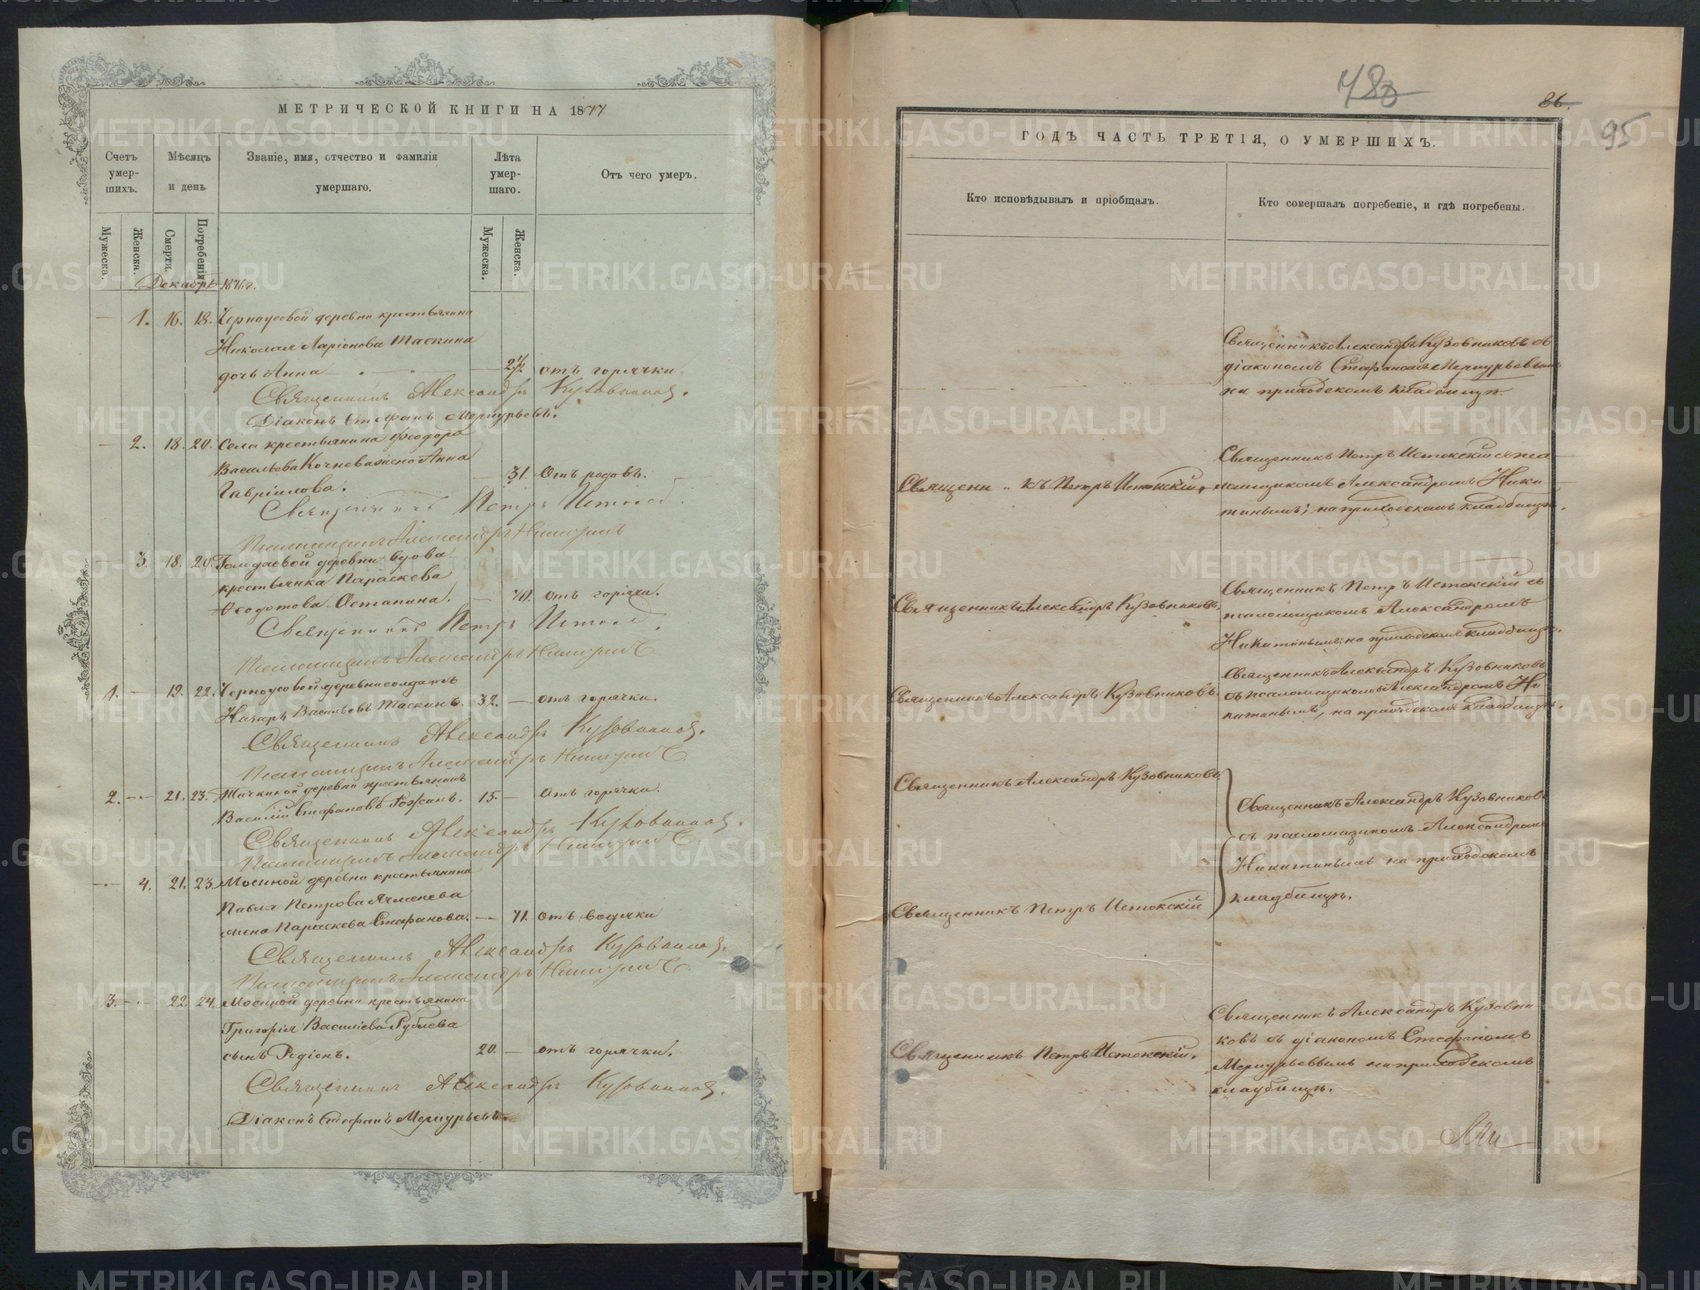 МЕТРИЧЕСКОЙ КНИГИ НА 1877
Счетъ умершихъ.
Мѣсяцъ и день
Званіе, имя, отчество и фамилія умершаго.
Лѣта умершаго.
Отъ чего умеръ.
Мужеска.
Женска.
Смерти.
Погребенія.
Мужеска.
Женска.
Декабрь
1. 16. 18. Черноусовой деревни крестьянина
Николая Ларіонова Таскина
дочь Анна отъ горячки
Священникъ Александръ Кузовниковъ.
Діаконъ Стефанъ Меркурьевъ.
2. 18. 20. Села крестьянина Феодора
Васильева жена Анна
Гавріилова. 31. Отъ родовъ.
Священникъ Петръ Истокскій
Псаломщикъ Александръ Никитинъ
3. 18. 20. деревни вдова
крестьянка Параскева
Федотова Останина. 70. отъ горячки.
Священникъ Петръ Истокскій
Псаломщикъ Александръ Никитинъ
1. 19. 22. Черноусовой деревни солдатъ
Назаръ Таскинъ. 32. отъ горячки.
Священникъ Александръ Кузовниковъ.
Псаломщикъ Александръ Никитинъ
2. 21. 23. деревни крестьянинъ
Василій Стефановъ 15. отъ горячки.
Священникъ Александръ Кузовниковъ.
Псаломщикъ Александръ Никитинъ
4. 21. 23. Мосиной деревни крестьянина
Павла Петрова Ячменева
жена Параскева Стефанова. 71. отъ водянки
Священникъ Александръ Кузовниковъ.
Псаломщикъ Александръ Никитинъ
3. 22. 24. Мосиной деревни крестьянина
Григорія Васильева Рублева
сынъ Родіонъ. 20. отъ горячки.
Священникъ Александръ Кузовниковъ.
Діаконъ Стефанъ Меркурьевъ.
86.
95
ГОДЪ ЧАСТЬ ТРЕТІЯ, О УМЕРШИХЪ.
Кто исповѣдывалъ и пріобщалъ.
Кто совершалъ погребеніе, и гдѣ погребены.
Священникъ Александръ Кузовниковъ съ
діакономъ Стефаномъ Меркурьевымъ
на приходскомъ кладбищѣ.
Священникъ Петръ Истокскій.
Священникъ Петръ Истокскій съ пса-
ломщикомъ Александромъ Ники-
тинымъ; на приходскомъ кладбищѣ.
Священникъ Александръ Кузовниковъ.
Священникъ Петръ Истокскій съ
псаломщикомъ Александромъ
Никитинымъ, на приходскомъ кладбищѣ.
Священникъ Александръ Кузовниковъ.
Священникъ Александръ Кузовниковъ
съ псаломщикомъ Александромъ Ни-
китинымъ, на приходскомъ кладбищѣ.
Священникъ Александръ Кузовниковъ
Священникъ Александръ Кузовниковъ
съ псаломщикомъ Александромъ
Никитинымъ на приходскомъ
кладбищѣ.
Священникъ Петръ Истокскій
Священникъ Петръ Истокскій.
Священникъ Александръ Кузовни-
ковъ съ діакономъ Стефаномъ
Меркурьевымъ на приходскомъ
кладбищѣ.
METRIKI.GASO-URAL.RU